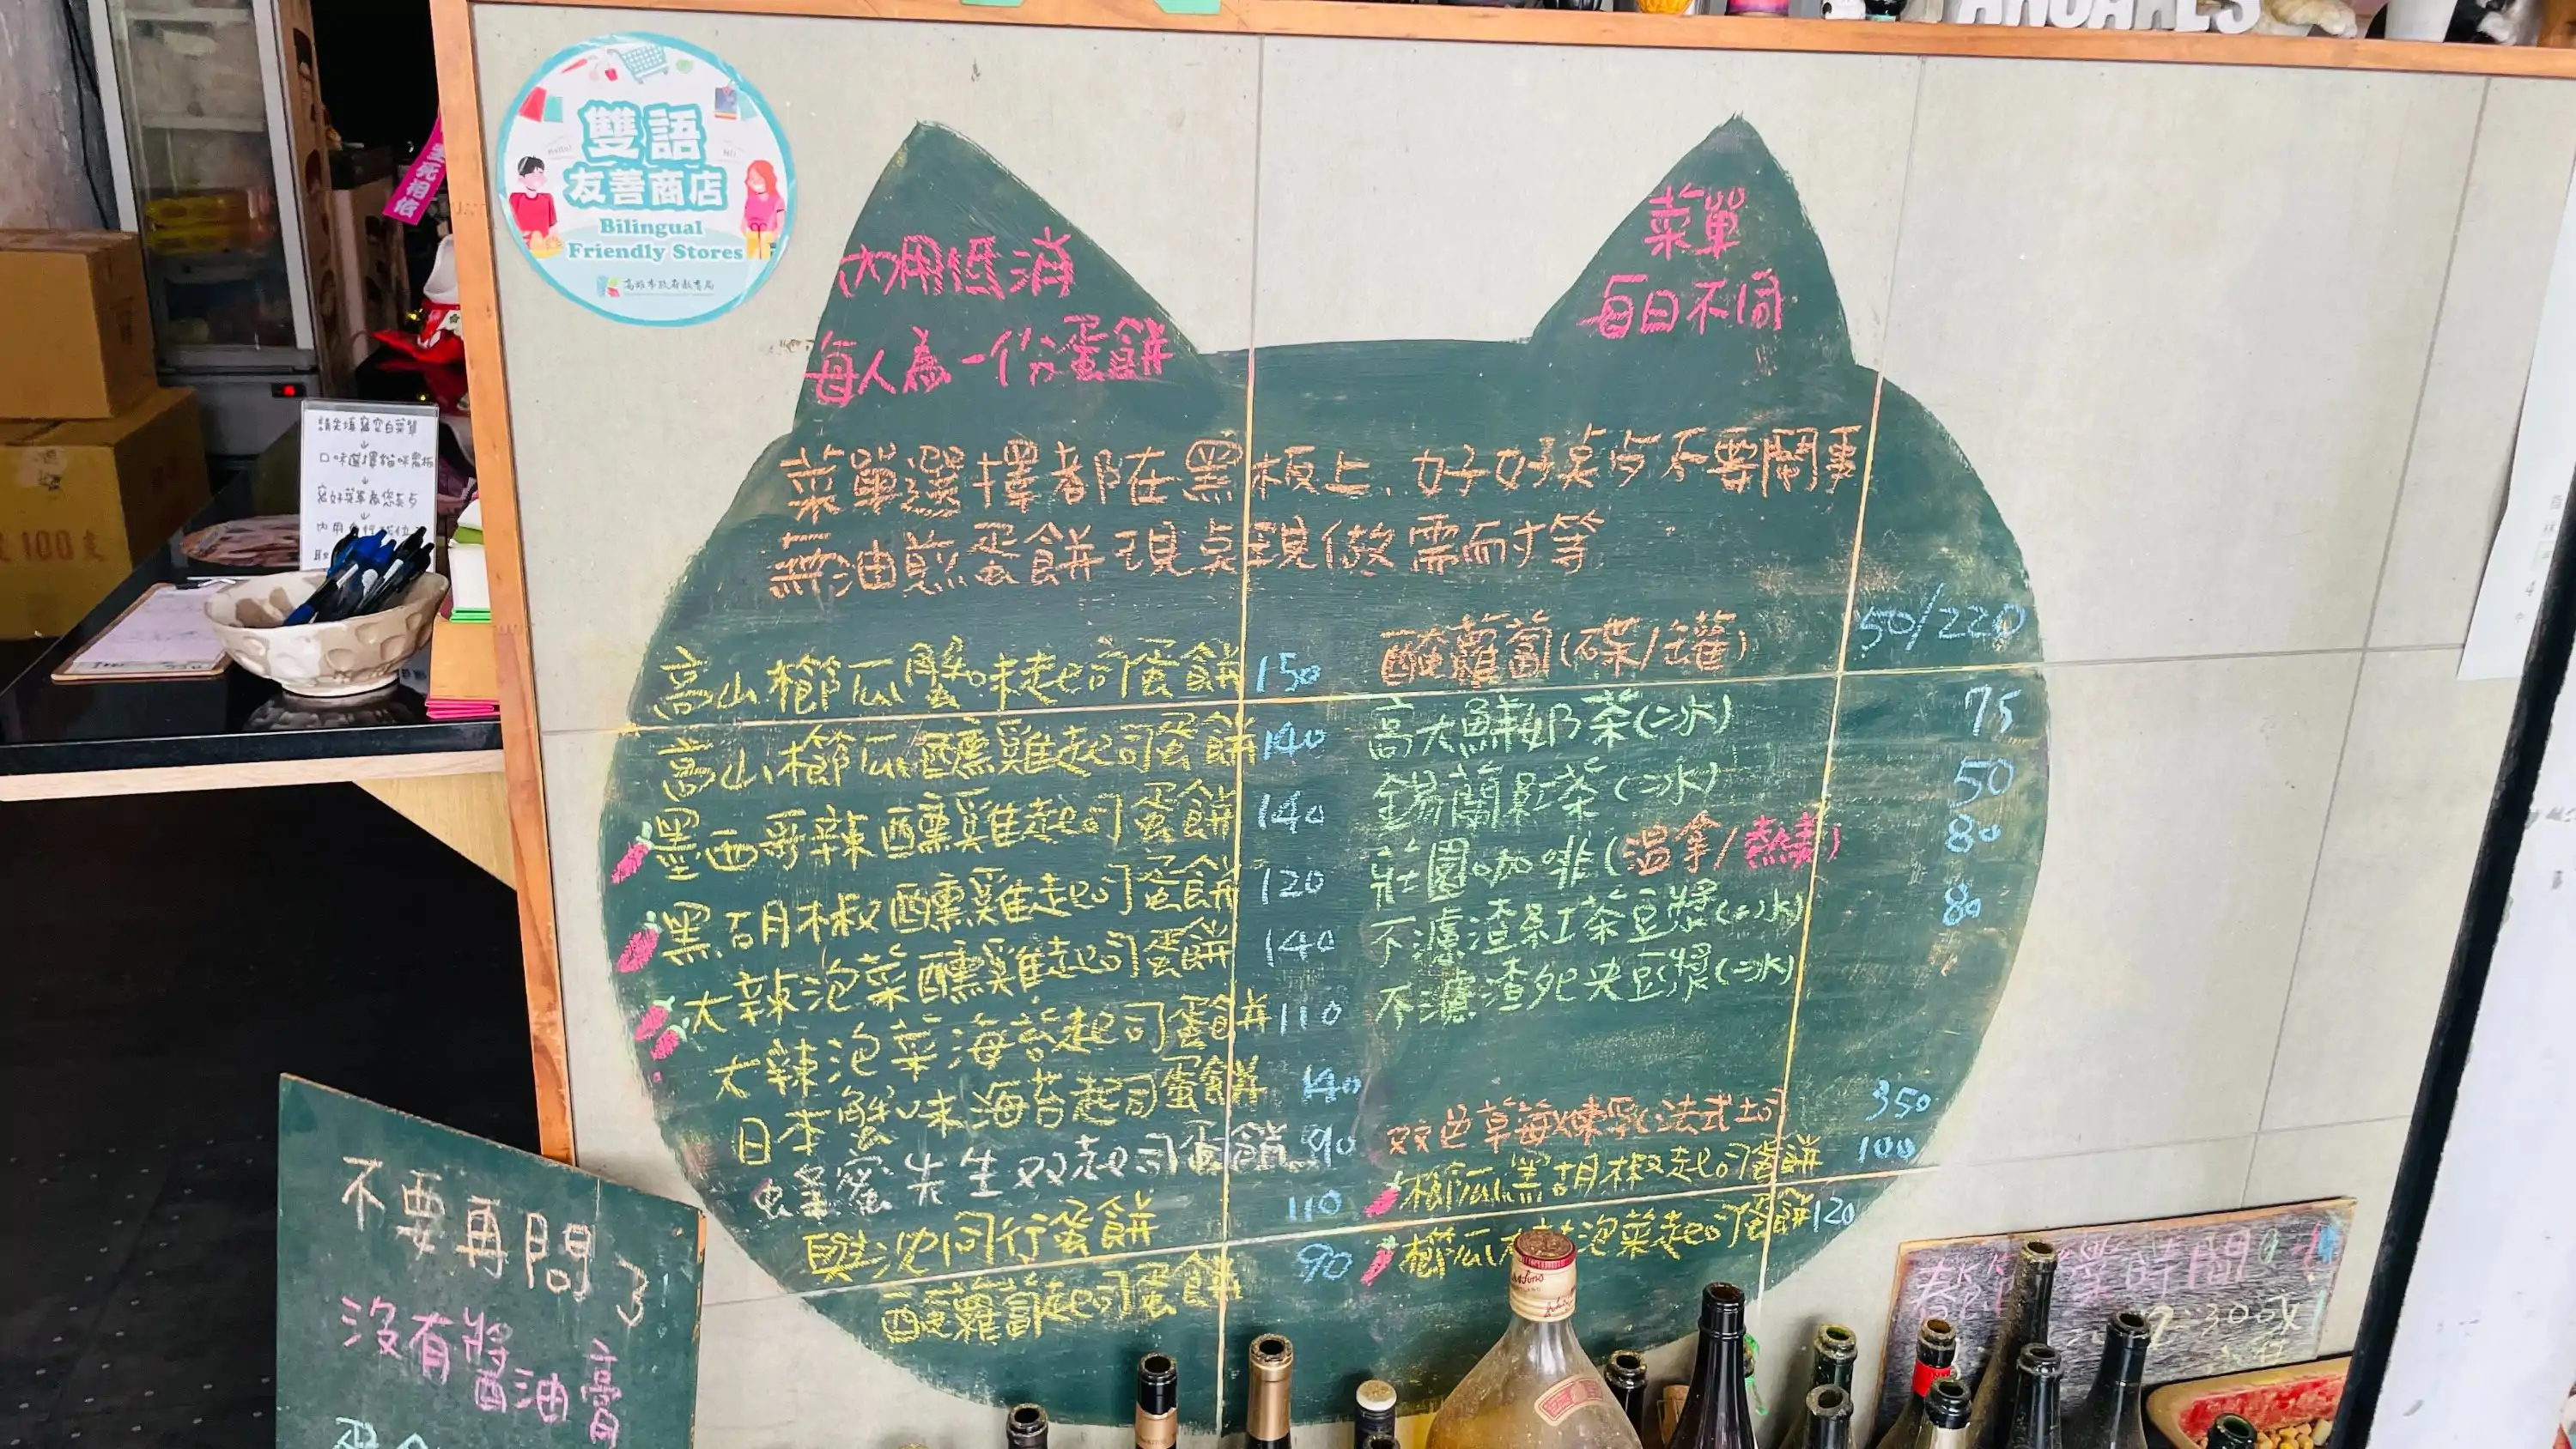 雙語
友善商店
Bilingual
Friendly Stores
高雄市政府教育局
生死相依
內用低消
每人為一份蛋餅
菜單
每日不同
菜單選擇都在黑板上、好好桌點不要鬧事
無油煎蛋餅現桌現做需耐等
高山櫛瓜蟹味起司蛋餅 150
高山櫛瓜醺雞起司蛋餅 140
墨西哥辣醺雞起司蛋餅 140
黑胡椒醺雞起司蛋餅 120
大辣泡菜醺雞起司蛋餅 140
大辣泡菜海苔起司蛋餅 110
日本蟹味海苔起司蛋餅 140
蜂蜜先生双起司蛋餅 90
與沈同行蛋餅 110
酸蘿蔔起司蛋餅 90
酸蘿蔔(碟/罐) 50/220
高大鮮奶茶(冰) 75
錫蘭紅茶(冰) 50
莊園咖啡(溫拿/熱美) 80
不濾渣紅茶豆漿(冰) 80
不濾渣死夫豆漿(冰)
双色草莓煉乳法式土司 350
櫛瓜黑胡椒起司蛋餅 100
櫛瓜 泡菜起司蛋餅 120
請先填寫空白菜單
口味選擇貓咪黑板
100支
不要再問了
沒有將
醬油膏
時間